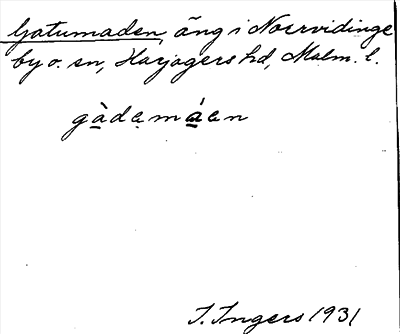 Gatumaden, äng i Norrvidinge
by o. sn, Harjagers hd, Malm. l.
gàdemáen
I. Ingers 1931